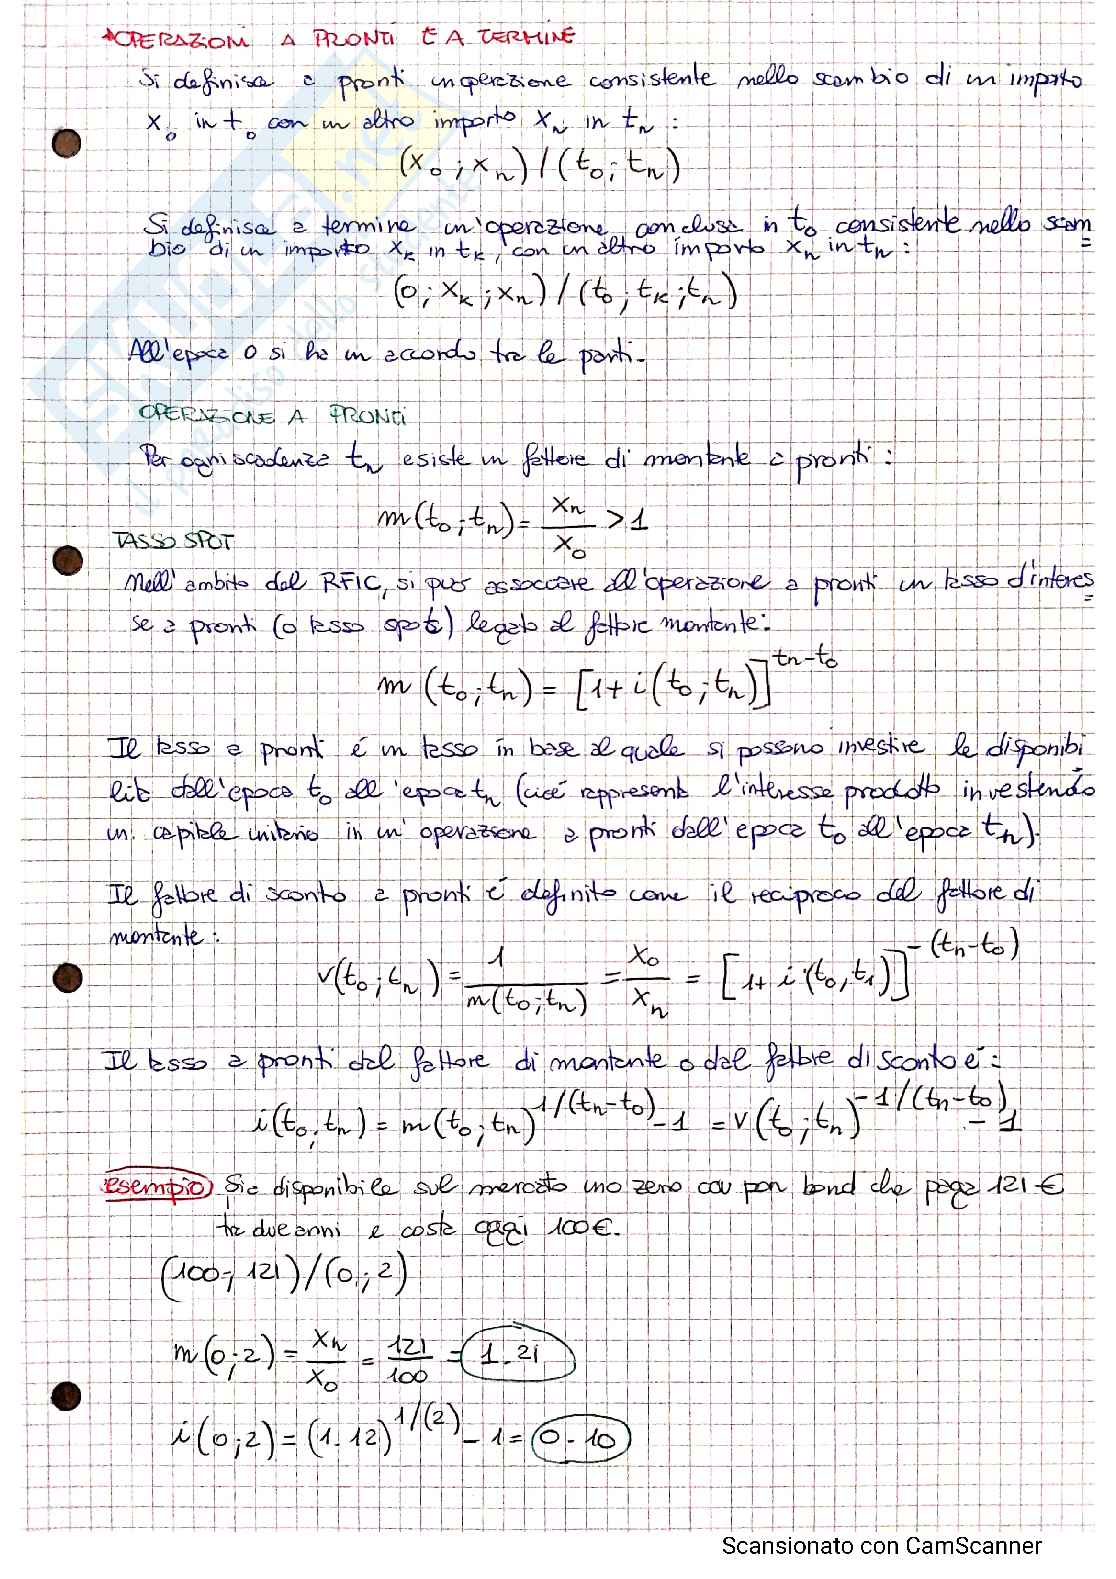 *OPERAZIONI A PRONTI E A TERMINE
Si definisce a pronti un'operazione consistente nello scambio di un importo
x₀ in t₀ con un altro importo xₙ in tₙ :
(x₀ ; xₙ) / (t₀ ; tₙ)
Si definisce a termine un'operazione conclusa in t₀ consistente nello scam
bio di un importo xₖ in tₖ, con un altro importo xₙ in tₙ :
(0 ; xₖ ; xₙ) / (t₀ ; tₖ ; tₙ)
All'epoca 0 si ha un accordo tra le parti.
OPERAZIONE A PRONTI
Per ogni scadenza tₙ esiste un fattore di montante a pronti :
m(t₀ ; tₙ) = xₙ / x₀ > 1
TASSO SPOT
Nell'ambito del RFIC, si può associare all'operazione a pronti un tasso d'interes
se a pronti (o tasso spot) legato al fattore montante:
m (t₀ ; tₙ) = [1 + i (t₀ ; tₙ)]^(tn-t₀)
Il tasso a pronti é un tasso in base al quale si possono investire le disponibi
lità dall'epoca t₀ all'epoca tₙ (cioé rappresenta l'interesse prodotto investendo
un capitale unitario in un'operazione a pronti dall'epoca t₀ all'epoca tₙ).
Il fattore di sconto a pronti é definito come il reciproco del fattore di
montante :
v(t₀ ; tₙ) = 1 / m(t₀ ; tₙ) = x₀ / xₙ = [1 + i (t₀, t₁)]^-(tn-t₀)
Il tasso a pronti dal fattore di montante o dal fattore di sconto é :
i(t₀ ; tₙ) = m(t₀ ; tₙ)^1/(tn-t₀) - 1 = v(t₀ ; tₙ)^-1/(tn-t₀) - 1
esempio) Sia disponibile sul mercato uno zero cou pon bond che paga 121 €
tra due anni e costa oggi 100€.
(100 ; 121) / (0 ; 2)
m(0 ; 2) = xₙ / x₀ = 121 / 100 = 1.21
i(0 ; 2) = (1.12)^1/(2) - 1 = 0.10
Scansionato con CamScanner